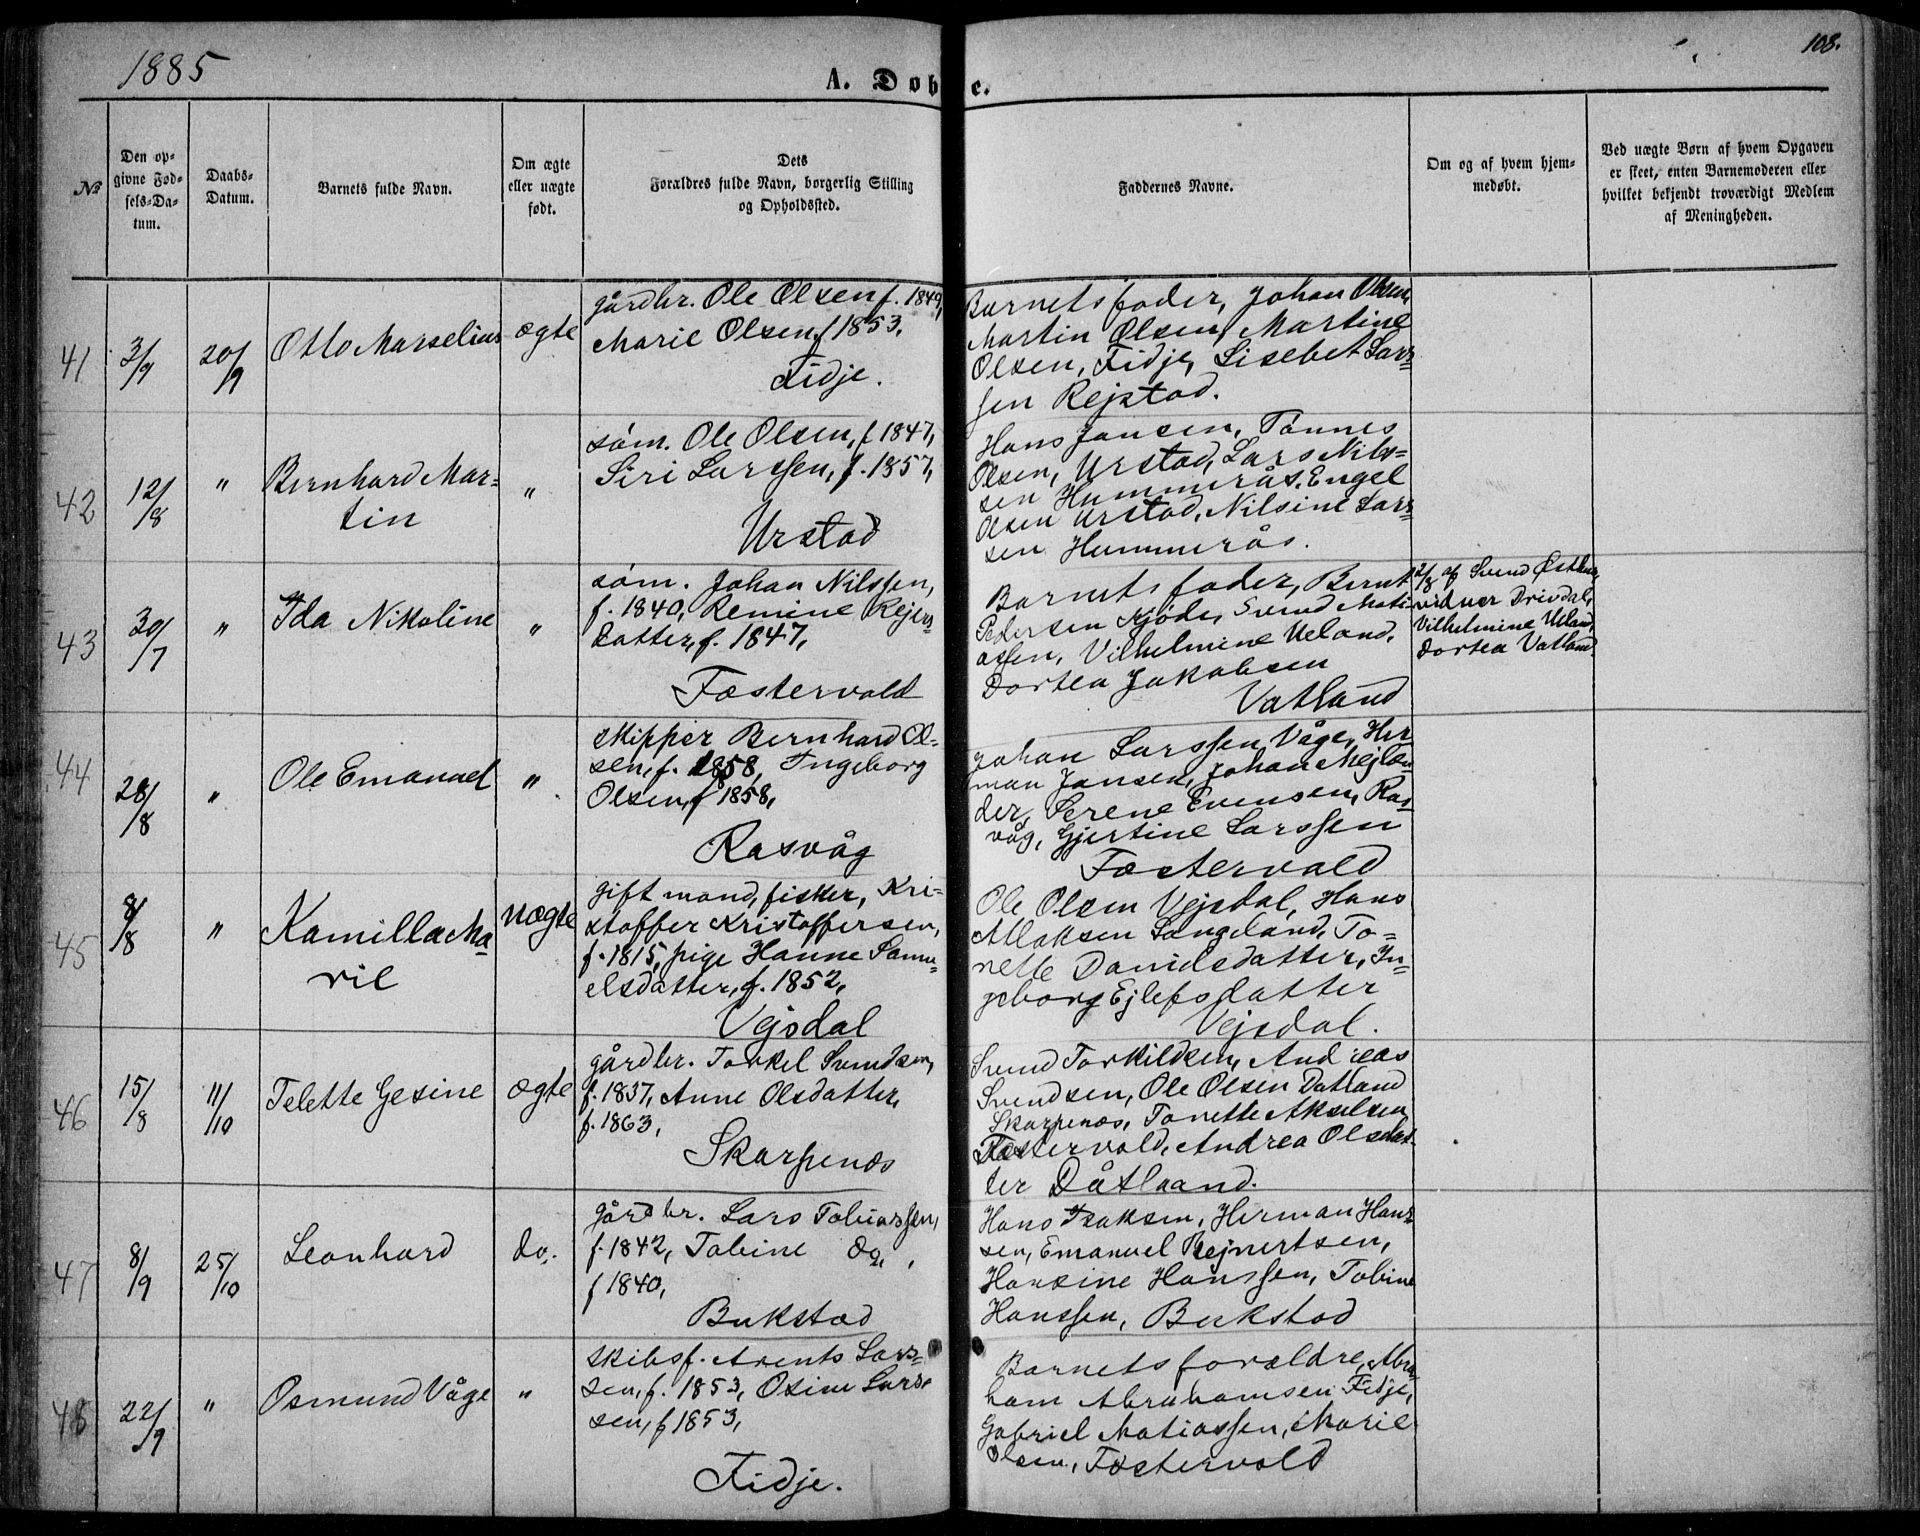 1885
108.
A. Døbte.
No
Den op-
givne Fød-
sels-Da-
tum.
Daabs-
Datum.
Barnets fulde Navn.
Om ægte
eller uægte
født.
Dets
Forældres fulde Navn, borgerlig Stilling
og Opholdssted.
Faddernes Navne.
Om og af hvem hjem-
medøbt.
Ved uægte Børn af hvem Opgaven
er skeet, enten Barnemoderen eller
hvilket bekjendt troværdigt Medlem
af Meningheden.
41
3/9
20/9
Otto Marselius
ægte
gårdbr. Ole Olsen f. 1849,
Marie Olsen, f 1853,
Fidje.
Barnets fader, Johan Olsen,
Martin Olsen, Martine
Olsen, Fidje, Lisebet Lars-
sen Rejstad.
42
12/8
"
Bernhard Mar-
tin
"
søm. Ole Olsen, f 1847,
Siri Larssen, f. 1857,
Urstad
Hans Jansen, Tønnes
Olsen, Urstad, Lars Nils-
sen Hummerås, Engel
Olsen Urstad, Nilsine Lars-
sen Hummerås.
43
30/7
"
Ida Nikoline
"
søm. Johan Nilssen,
f. 1840, Remine Rejers-
datter, f. 1847,
Fostervold
Barnets fader, Bernt
Pedersen Kjøde, Svend Mati
assen, Vilhelmine Ueland,
Dortea Jakobsen
Vatland
2/8 af Svend Østhus,
vidner Drivdal,
Vilhelmine Ueland,
Dortea Vatland.
44
28/8
"
Ole Emanuel
"
skipper Bernhard Ol-
sen, f. 1858, Ingeborg
Olsen, f 1858,
Rasvåg
Johan Larssen Våge, Her
man Jansen, Johan Mejlæn-
der, Serene Evensen, Ras-
våg, Gjertine Larssen
Fostervold
45
8/8
"
Kamilla Ma-
rie
uægte
gift mand, fisker, Kri-
stoffer Kristoffersen,
f. 1815, pige Hanne Samu-
elsdatter, f. 1852,
Vejsdal
Ole Olsen Vejsdal, Hans
Aslaksen Langeland, To-
nette Danidsdatter, In-
geborg Ejlefsdatter
Vejsdal.
46
15/8
11/10
Telette Gesine
ægte
gårdbr. Torkel Svendsen,
f. 1837, Anne Olsdatter,
f. 1863,
Skarpenæs
Svend Torkildsen, Andreas
Svendsen, Ole Olsen Datland
Skarpenæs, Tonette Akselsen
Fostervold, Andrea Olsdat
ter Dåtland.
47
8/9
25/10
Leonhard
do.
gårdbr. Lars Tobiassen,
f. 1842, Tobine do,
f 1840,
Bukstad
Hans Isaksen, Herman Hans-
sen, Emanuel Rejnertsen,
Hansine Hanssen, Tobine
Hanssen, Bukstad
48
22/9
"
Osmund Våge
"
skibsf. Arents Lars-
sen, f. 1853, Osine Lars-
sen, f 1853,
Fidje.
Barnets forældre, Abra
ham Abrahamsen Fidje,
Gabriel Matiassen, Marie
Olsen, Fostervold